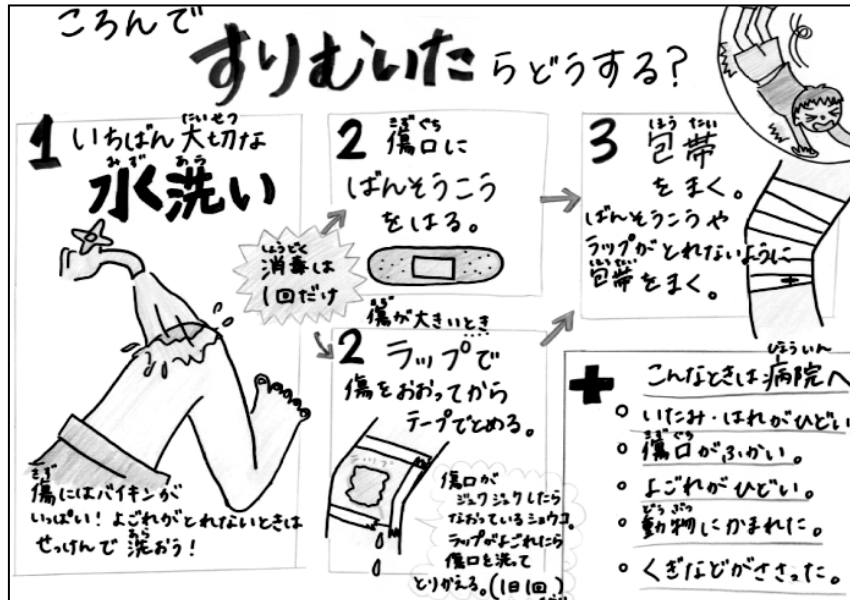 ころんで
すりむいたらどうする?
1 いちばん大切な
たいせつ
水洗い
みず あら
傷にはバイキンが
きず
いっぱい!よごれがとれないときは
せっけんで洗おう!
あら
消毒は
しょうどく
1回だけ
2 傷口に
きず ぐち
ばんそうこう
をはる。
傷が大きいとき
きず
2 ラップで
傷をおおってから
テープでとめる。
ラップ
傷口が
ジュクジュクしたら
なおっているショウコ。
ラップがよごれたら
傷口を洗って
とりかえる。(1日1回)
3 包帯
ほう たい
をまく。
ばんそうこうや
ラップがとれないように
包帯をまく。
ほうたい
こんなときは病院へ
びょういん
いたみ・はれがひどい
傷口がふかい。
きず ぐち
よごれがひどい。
動物にかまれた。
どう ぶつ
くぎなどがささった。